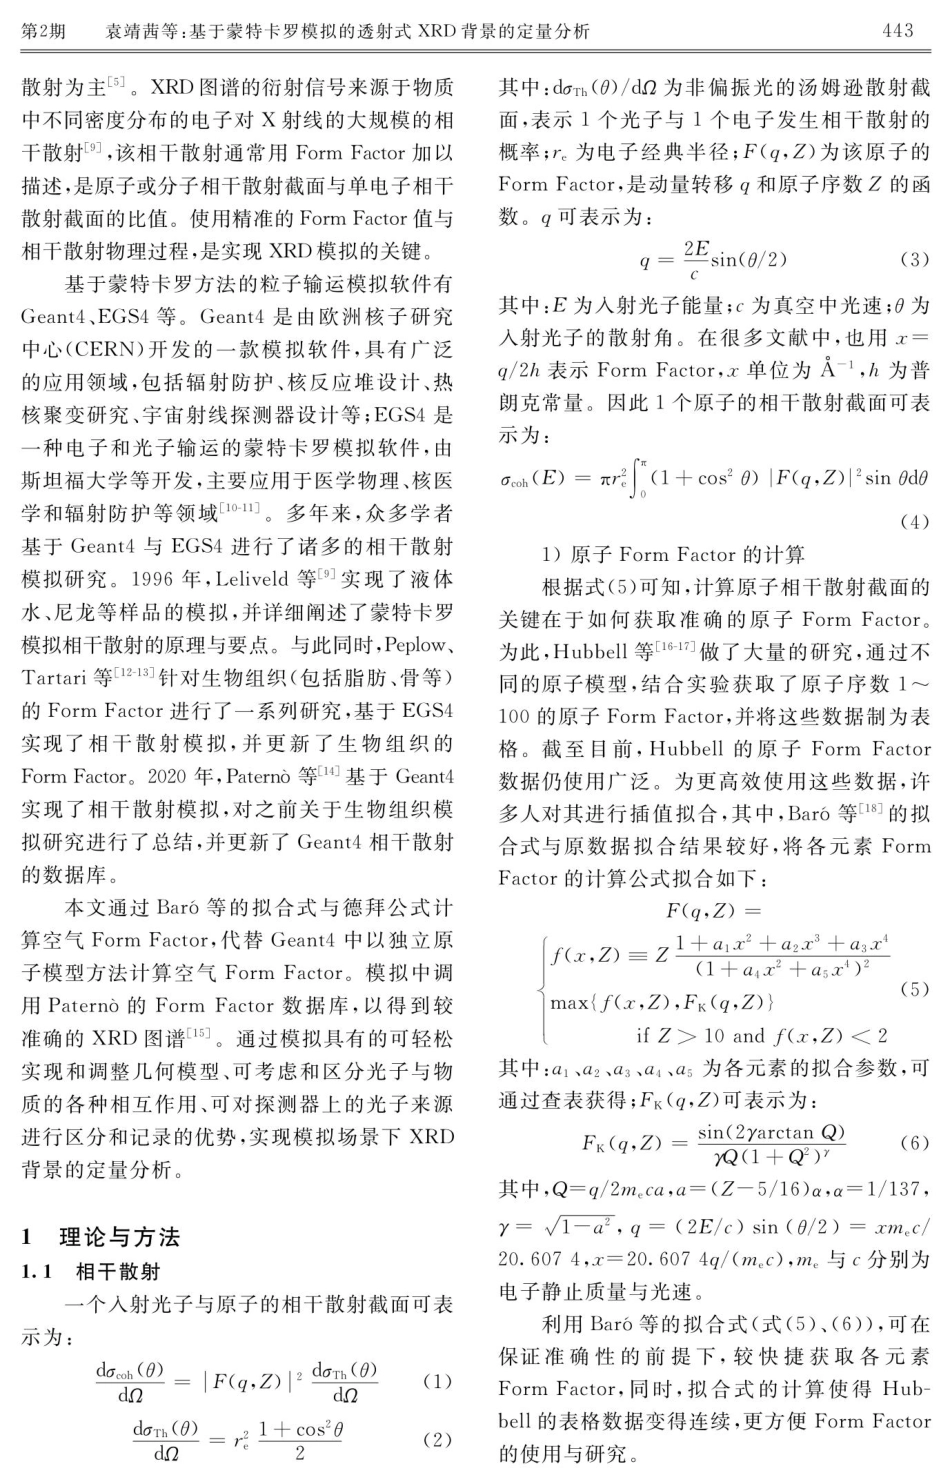 第2期 袁靖茜等:基于蒙特卡罗模拟的透射式 XRD 背景的定量分析 443
散射为主[5]。XRD 图谱的衍射信号来源于物质
中不同密度分布的电子对 X 射线的大规模的相
干散射[9],该相干散射通常用 Form Factor 加以
描述,是原子或分子相干散射截面与单电子相干
散射截面的比值。使用精准的 Form Factor 值与
相干散射物理过程,是实现 XRD 模拟的关键。
基于蒙特卡罗方法的粒子输运模拟软件有
Geant4、EGS4 等。Geant4 是由欧洲核子研究
中心(CERN)开发的一款模拟软件,具有广泛
的应用领域,包括辐射防护、核反应堆设计、热
核聚变研究、宇宙射线探测器设计等;EGS4 是
一种电子和光子输运的蒙特卡罗模拟软件,由
斯坦福大学等开发,主要应用于医学物理、核医
学和辐射防护等领域[10-11]。多年来,众多学者
基于 Geant4 与 EGS4 进行了诸多的相干散射
模拟研究。1996 年,Leliveld 等[9]实现了液体
水、尼龙等样品的模拟,并详细阐述了蒙特卡罗
模拟相干散射的原理与要点。与此同时,Peplow、
Tartari 等[12-13]针对生物组织(包括脂肪、骨等)
的 Form Factor 进行了一系列研究,基于 EGS4
实现了相干散射模拟,并更新了生物组织的
Form Factor。2020 年,Paternò 等[14]基于 Geant4
实现了相干散射模拟,对之前关于生物组织模
拟研究进行了总结,并更新了 Geant4 相干散射
的数据库。
本文通过 Baró 等的拟合式与德拜公式计
算空气 Form Factor,代替 Geant4 中以独立原
子模型方法计算空气 Form Factor。模拟中调
用 Paternò 的 Form Factor 数据库,以得到较
准确的 XRD 图谱[15]。通过模拟具有的可轻松
实现和调整几何模型、可考虑和区分光子与物
质的各种相互作用、可对探测器上的光子来源
进行区分和记录的优势,实现模拟场景下 XRD
背景的定量分析。
1 理论与方法
1.1 相干散射
一个入射光子与原子的相干散射截面可表
示为:
dσcoh(θ)/dΩ = |F(q,Z)|² dσTh(θ)/dΩ (1)
dσTh(θ)/dΩ = re² (1+cos²θ)/2 (2)
其中:dσTh(θ)/dΩ 为非偏振光的汤姆逊散射截
面,表示 1 个光子与 1 个电子发生相干散射的
概率;re 为电子经典半径;F(q,Z)为该原子的
Form Factor,是动量转移 q 和原子序数 Z 的函
数。q 可表示为:
q = 2E/c sin(θ/2) (3)
其中:E 为入射光子能量;c 为真空中光速;θ 为
入射光子的散射角。在很多文献中,也用 x=
q/2h 表示 Form Factor,x 单位为 Å⁻¹,h 为普
朗克常量。因此 1 个原子的相干散射截面可表
示为:
σcoh(E) = πre² ∫₀^π (1+cos² θ) |F(q,Z)|² sin θdθ
(4)
1) 原子 Form Factor 的计算
根据式(5)可知,计算原子相干散射截面的
关键在于如何获取准确的原子 Form Factor。
为此,Hubbell 等[16-17]做了大量的研究,通过不
同的原子模型,结合实验获取了原子序数 1～
100 的原子 Form Factor,并将这些数据制为表
格。截至目前,Hubbell 的原子 Form Factor
数据仍使用广泛。为更高效使用这些数据,许
多人对其进行插值拟合,其中,Baró 等[18]的拟
合式与原数据拟合结果较好,将各元素 Form
Factor 的计算公式拟合如下:
F(q,Z) =
{ f(x,Z) ≡ Z (1+a₁x²+a₂x³+a₃x⁴)/(1+a₄x²+a₅x⁴)²
max{f(x,Z),FK(q,Z)} (5)
if Z > 10 and f(x,Z) < 2
其中:a₁、a₂、a₃、a₄、a₅ 为各元素的拟合参数,可
通过查表获得;FK(q,Z)可表示为:
FK(q,Z) = sin(2γarctan Q)/γQ(1+Q²)^γ (6)
其中,Q=q/2mₑca,a=(Z−5/16)α,α=1/137,
γ = √(1−a²), q = (2E/c) sin (θ/2) = xmₑc/
20.607 4,x=20.607 4q/(mₑc),mₑ 与 c 分别为
电子静止质量与光速。
利用 Baró 等的拟合式(式(5)、(6)),可在
保证准确性的前提下,较快捷获取各元素
Form Factor,同时,拟合式的计算使得 Hub-
bell 的表格数据变得连续,更方便 Form Factor
的使用与研究。